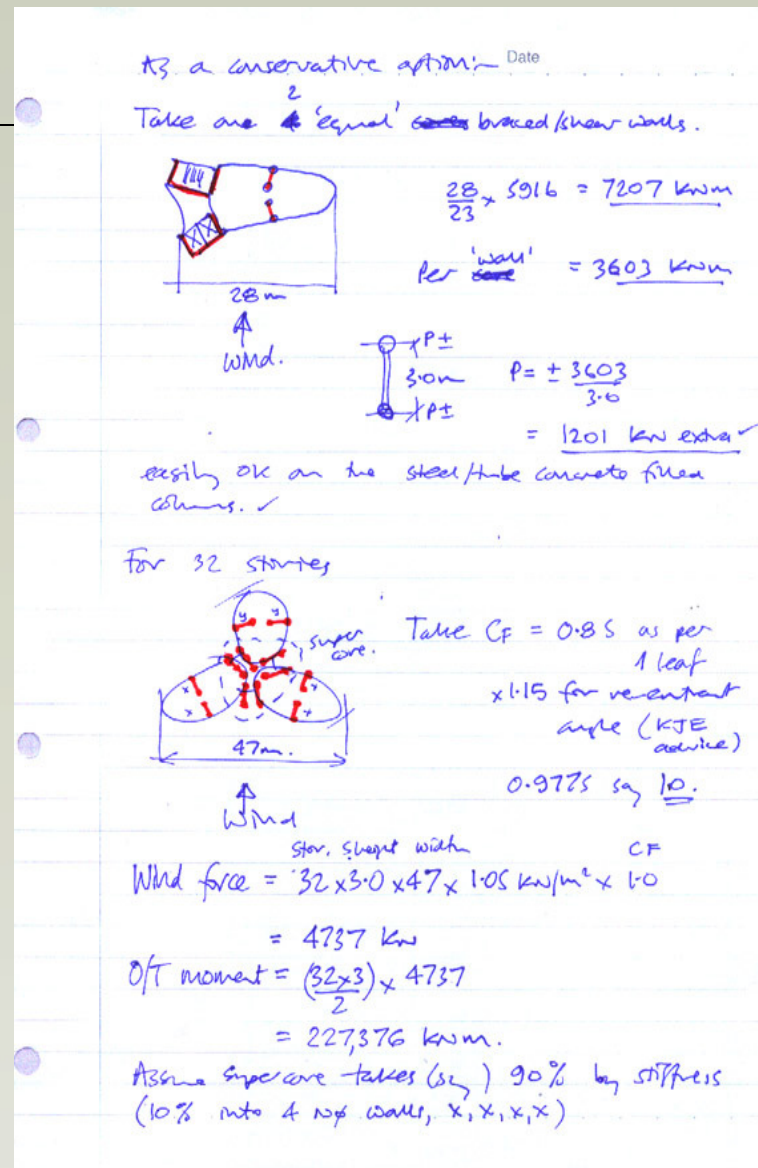 As a conservative option:- Date
2
Take one 'equal' braced/shear walls.
28/23 x 5916 = 7207 kNm
Per 'wall' = 3603 kNm
28m
Wind.
P±
3.0m
P±
P = ± 3603/3.0
= 1201 kN extra ✓
easily OK on the steel/tube concrete filled
columns. ✓
For 32 stories
y y
super
core.
x x
x x
47m.
Wind
Take CF = 0.85 as per
1 leaf
x1.15 for re-entrant
angle (KJE
advice)
0.9775 say 1.0.
stor. s height width CF
Wind force = 32 x 3.0 x 47 x 1.05 kN/m² x 1.0
= 4737 kN
O/T moment = (32x3)/2 x 4737
= 227,376 kNm.
Assume supercore takes (say) 90% by stiffness
(10% into 4 No walls, x, x, x, x)